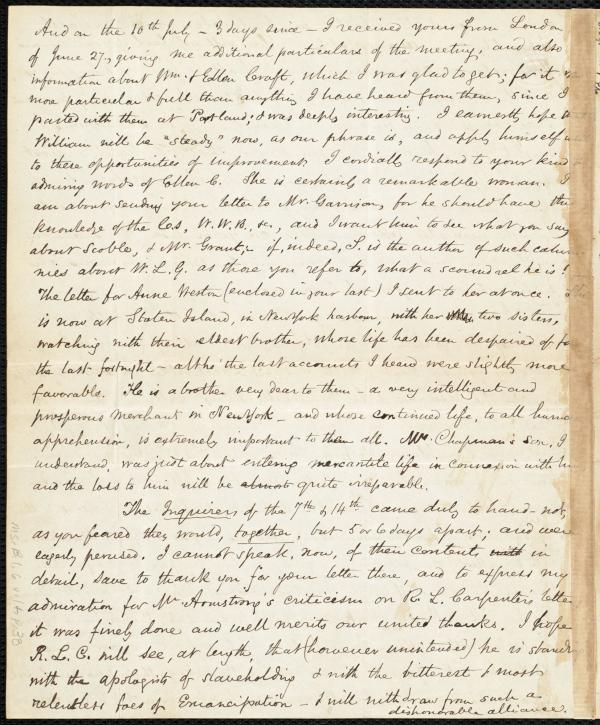 And on the 10th July – 3 days since – I received yours from London
of June 27, giving me additional particulars of the meeting, and also
information about Wm. & Ellen Craft, which I was glad to get; for it
more particular & full than anything I have heard from them, since I
parted with them at Portland; & was deeply interesting. I earnestly hope
William will be "steady" now, as our phrase is, and apply himself
to these opportunities of improvement. I cordially respond to your kind
admiring words of Ellen C. She is certainly a remarkable woman. I
am about sending your letter to Mr. Garrison, for he should have the
knowledge of the Cos, W.W.B., &c., and I want him to see what you say
about Scoble, & Mr. Grant; – if, indeed, S. is the author of such calum
nies about W. L. G. as those you refer to, what a scoundrel he is!
The letter for Anne Weston (enclosed in your last) I sent to her at once.
is now at Staten Island, in New York harbour, with her two sisters,
watching with their eldest brother, whose life has been despaired of for
the last fortnight – altho' the last accounts I heard were slightly more
favorable. He is a brother very dear to them – a very intelligent and
prosperous merchant in New York – and whose continued life, to all human
apprehension, is extremely important to them all. Mrs. Chapman's son, I
understand, was just about entering mercantile life in connexion with him
and the loss to him will be almost quite irreparable.
The Inquirers of the 7th & 14th came duly to hand – not,
as you feared they would, together, but 5 or 6 days apart; and were
eagerly perused. I cannot speak, now, of their contents with in
detail, save to thank you for your letter there, and to express my
admiration for Mr. Armstrong's criticism on R. L. Carpenter's letter
it was finely done and well merits our united thanks. I hope
R. L. C. will see, at length, that (however unintended) he is standing
with the apologists of slaveholding & with the bitterest & most
relentless foes of Emancipation – & will withdraw from such a
dishonorable alliance.
MS. B. 1. 6 v. 14 p. 38